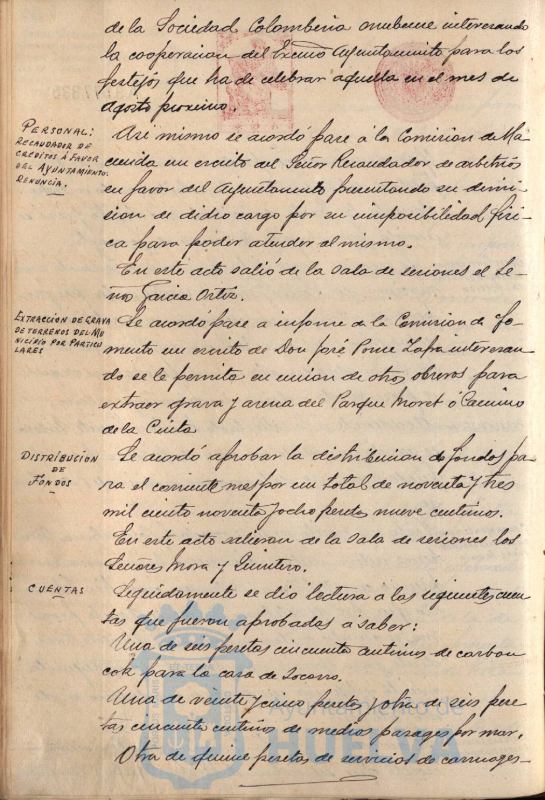 de la Sociedad Colombina onubense interesando
la cooperacion del Excmo Ayuntamiento para los
festejos que ha de celebrar aquella en el mes de
agosto proximo.
PERSONAL:
RECAUDADOR DE
CREDITOS Á FAVOR
DEL AYUNTAMIENTO.
RENUNCIA.
Asi mismo se acordó pase á la Comision de Ha
cienda un escrito del Señor Recaudador de arbitrios
en favor del Ayuntamiento presentando su dimi
sion de dicho cargo por su imposibilidad físi
ca para poder atender al mismo.
En este acto salió de la sala de sesiones el Se
ñor Garcia Ortiz.
EXTRACCION DE GRAVA
DE TERRENOS DEL MU
NICIPIO POR PARTICU
LARES
Se acordó pase a informe de la Comision de Fo
mento un escrito de Don José Ponce Zafra interesan
do se le permita en union de otros obreros para
extraer grava y arena del Parque Moret ó Camino
de la Cinta
DISTRIBUCION
DE
FONDOS
Se acordó aprobar la distribucion de fondos pa
ra el corriente mes por un total de noventa y tres
mil ciento noventa y ocho pesetas nueve centimos.
En este acto salieron de la sala de sesiones los
Señores Mora y Quintero.
CUENTAS
Seguidamente se dio lectura a las siguientes cuen
tas que fueron aprobadas á saber:
Una de seis pesetas cincuenta centimos de carbon
cok para la casa de Socorro.
Una de veinte y cinco pesetas y otra de seis pese
tas cincuenta centimos de medios pasages por mar.
Otra de quince pesetas de servicios de carruages-
Ayuntamiento de
HUELVA